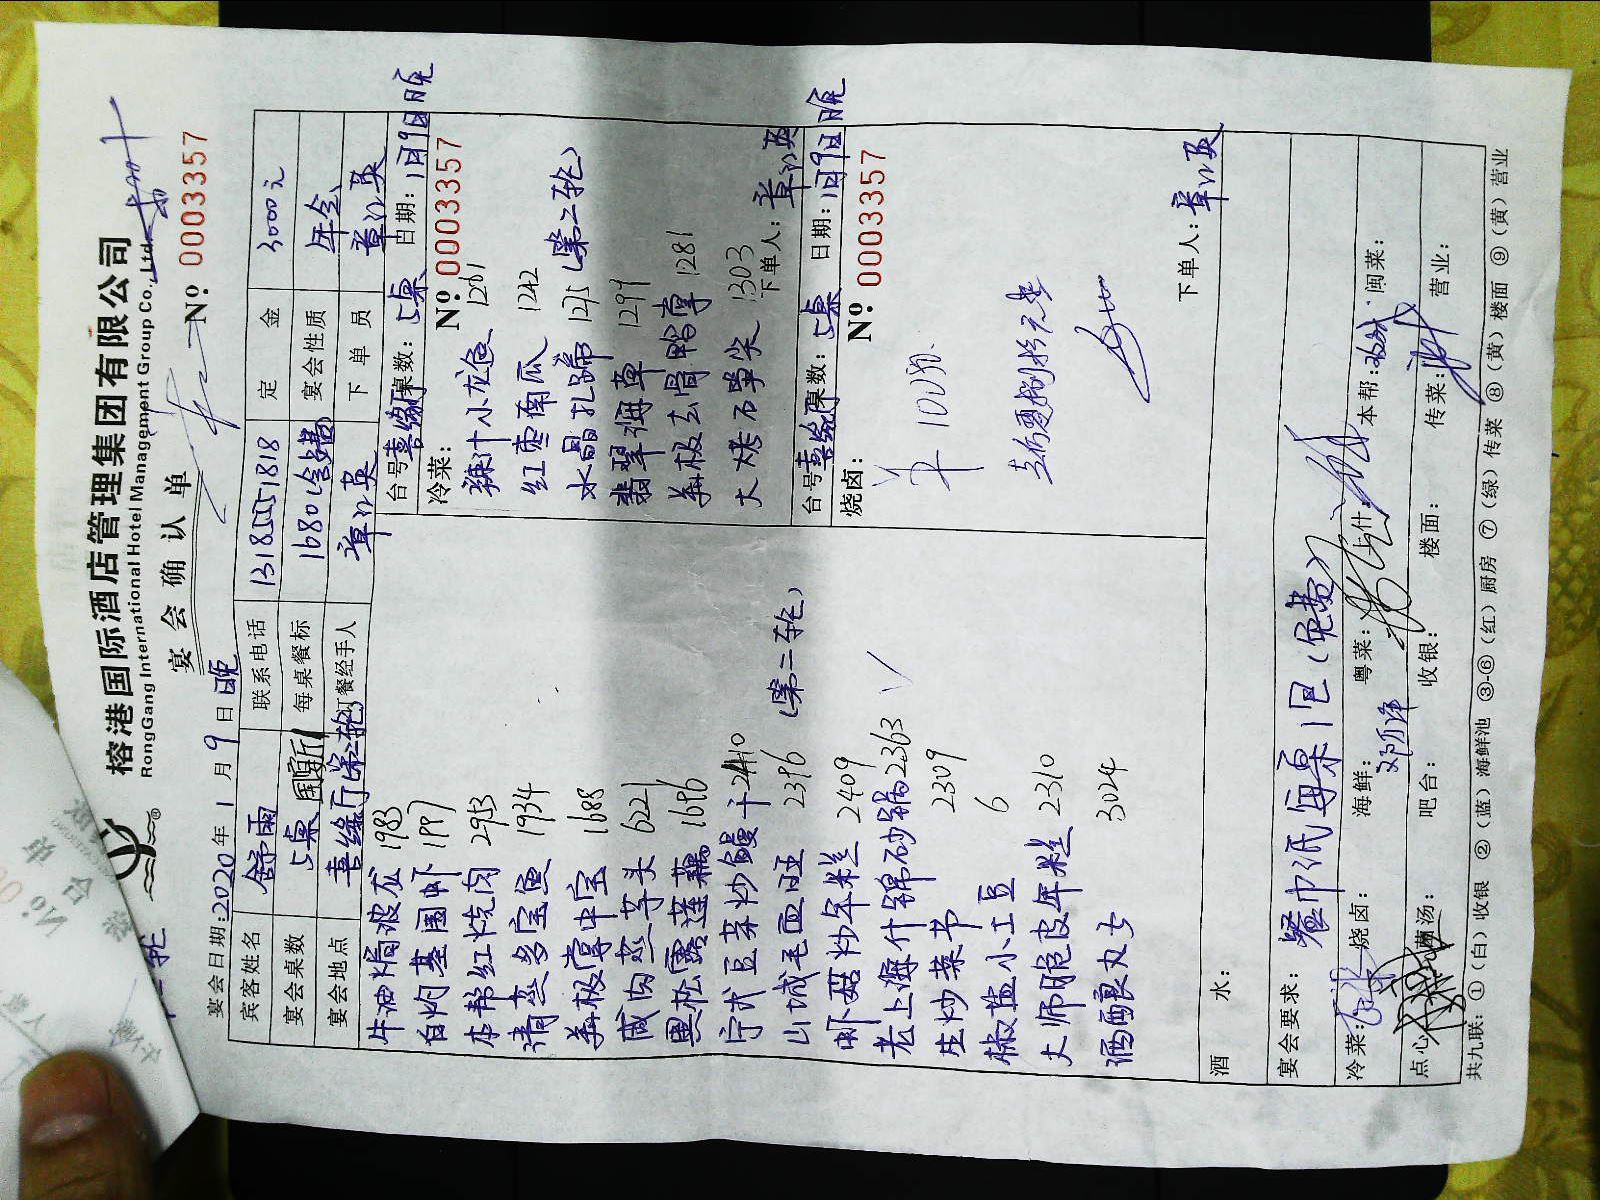 榕港国际酒店管理集团有限公司
RongGang International Hotel Management Group Co., Ltd
宴会确认单
Nº 0003357
宴会日期:2020年1月9日晚
宾客姓名 舒雨 联系电话 13155551818 定金 3000元
宴会桌数 5桌 每桌餐标 1680(含酒 宴会性质 年会
宴会地点 喜缘厅 订餐经手人 下单员
牛油焗波龙 1983
白灼基围虾 1997
本帮红烧肉 2953
清蒸多宝鱼 1934
美极掌中宝 1688
咸肉蒸芋头 6221
黑松露莲藕 1686
宁式豆菜炒鳗干 2410
山城毛血旺 2396 (第二轮)
虾菇炒年糕 2409
老上海什锦砂锅 2363
生炒菜书 2309
椒盐小土豆 6
大师脆皮年糕 2310
酒酿丸子 3024
台号:喜缘厅 桌数:5桌 日期:1月9日晚
冷菜: Nº 0003357
辣汁小龙鱼 1261
红枣南瓜 1242
水晶扎蹄 1275 (第二轮)
翡翠海草 1299
美极去骨鸭掌 1281
大烤石笋尖 1303
下单人:
台号:喜缘厅 桌数:5桌 日期:1月9日晚
烧卤: Nº 0003357
下单人:
酒水:
宴会要求: 餐巾纸每桌1包(免费)
冷菜: 烧卤: 海鲜: 粤菜: 上什: 本帮: 闽菜:
点心: 煲汤: 吧台: 收银: 楼面: 传菜: 营业:
共九联:①(白)收银 ②(蓝)海鲜池 ③-⑥(红)厨房 ⑦(绿)传菜 ⑧(黄)楼面 ⑨(黄)营业